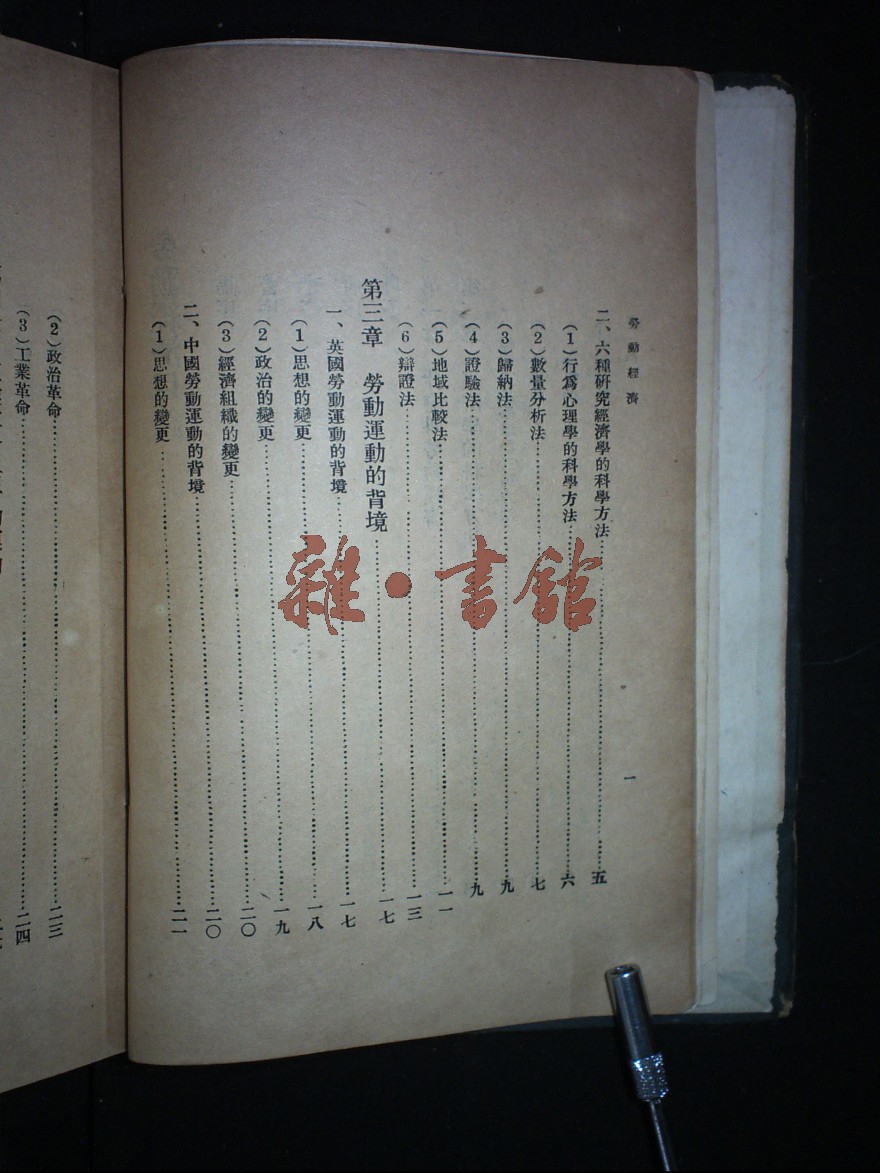 勞動經濟
一
二、六種研究經濟學的科學方法……五
(1)行爲心理學的科學方法……六
(2)數量分析法……七
(3)歸納法……九
(4)證驗法……九
(5)地域比較法……一一
(6)辯證法……一三
第三章 勞動運動的背境……一七
一、英國勞動運動的背境……一七
(1)思想的變更……一八
(2)政治的變更……一九
(3)經濟組織的變更……二〇
二、中國勞動運動的背境……二〇
(1)思想的變更……二一
(2)政治革命……二三
(3)工業革命……二四
雜·書館